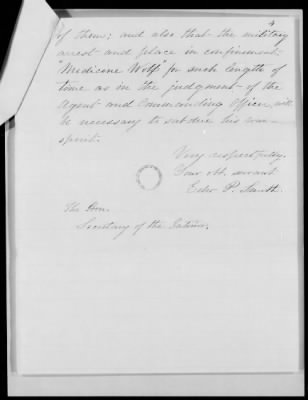 4
of them; and also that the military
arrest and place in confinement
"Medicine Wolf" for such length of
time as in the judgment of the
Agent and Commanding Officer will
be necessary to subdue his war-
spirit.
Very respectfully,
Your obt. servant
Edw. P. Smith
The Hon.
Secretary of the Interior.